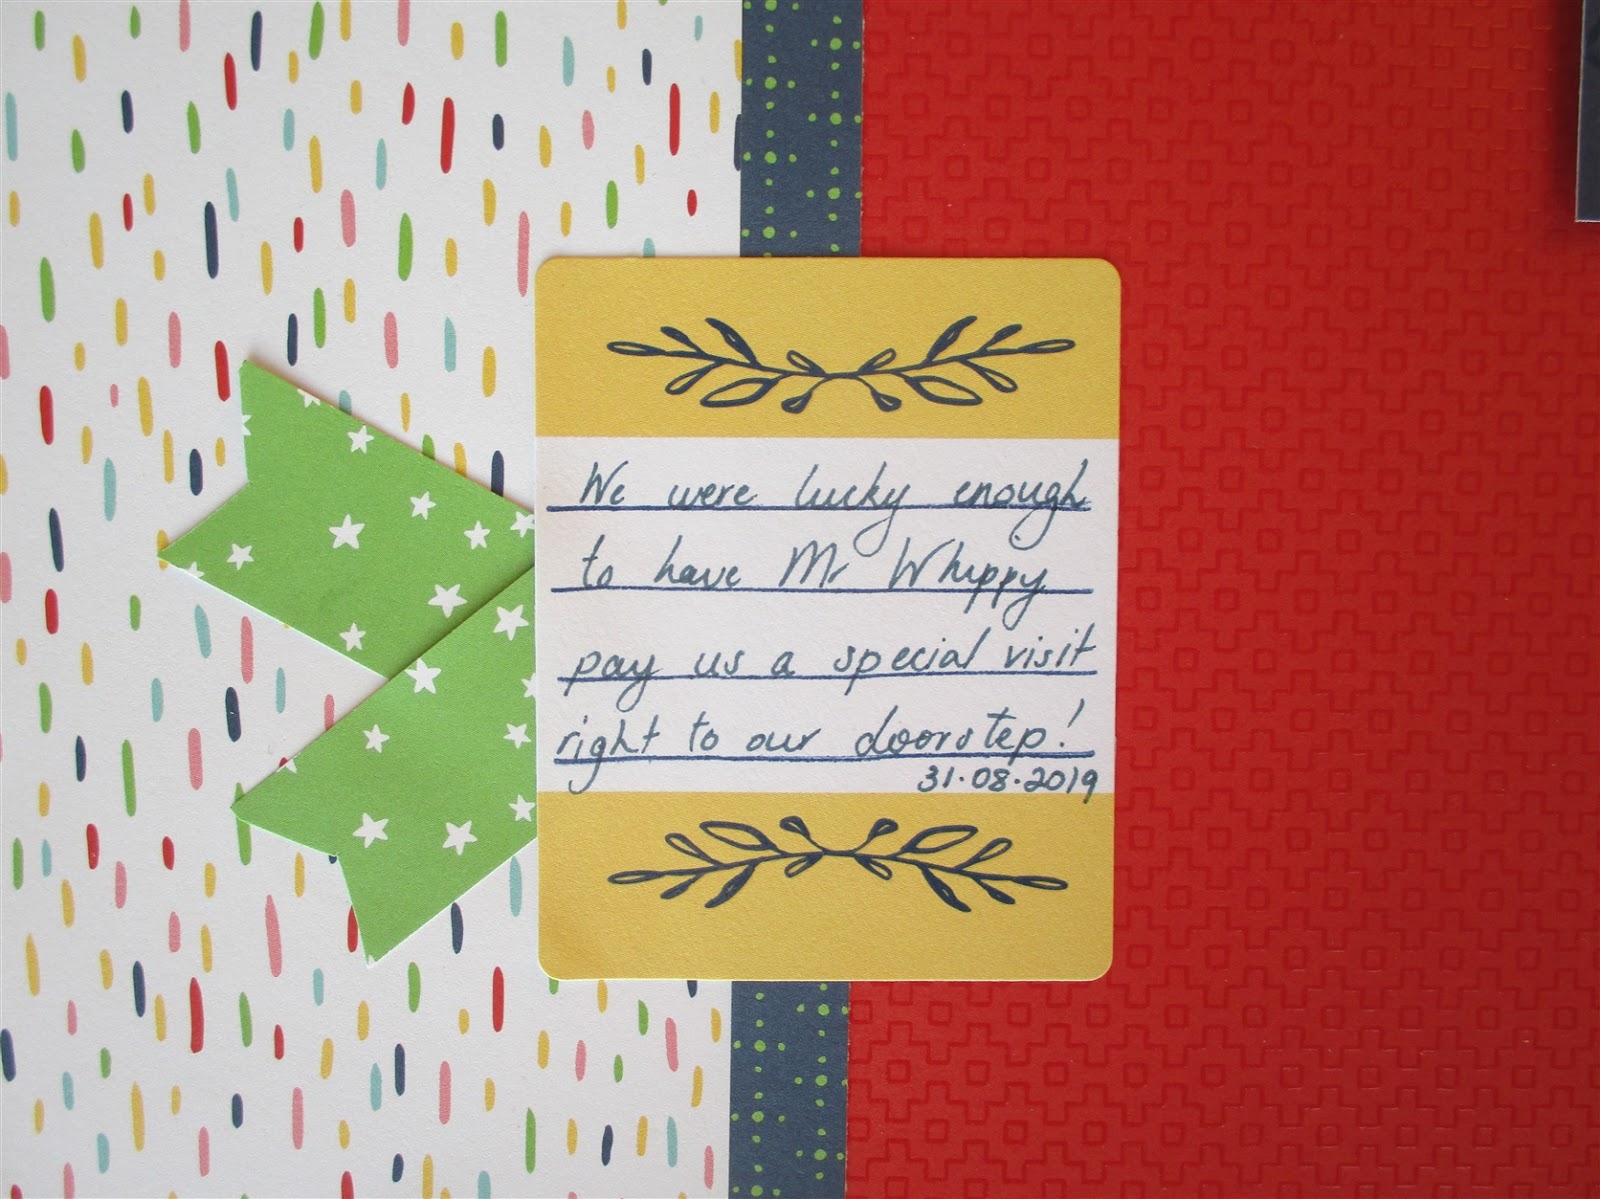 We were lucky enough
to have Mr Whippy
pay us a special visit
right to our doorstep!
31.08.2019